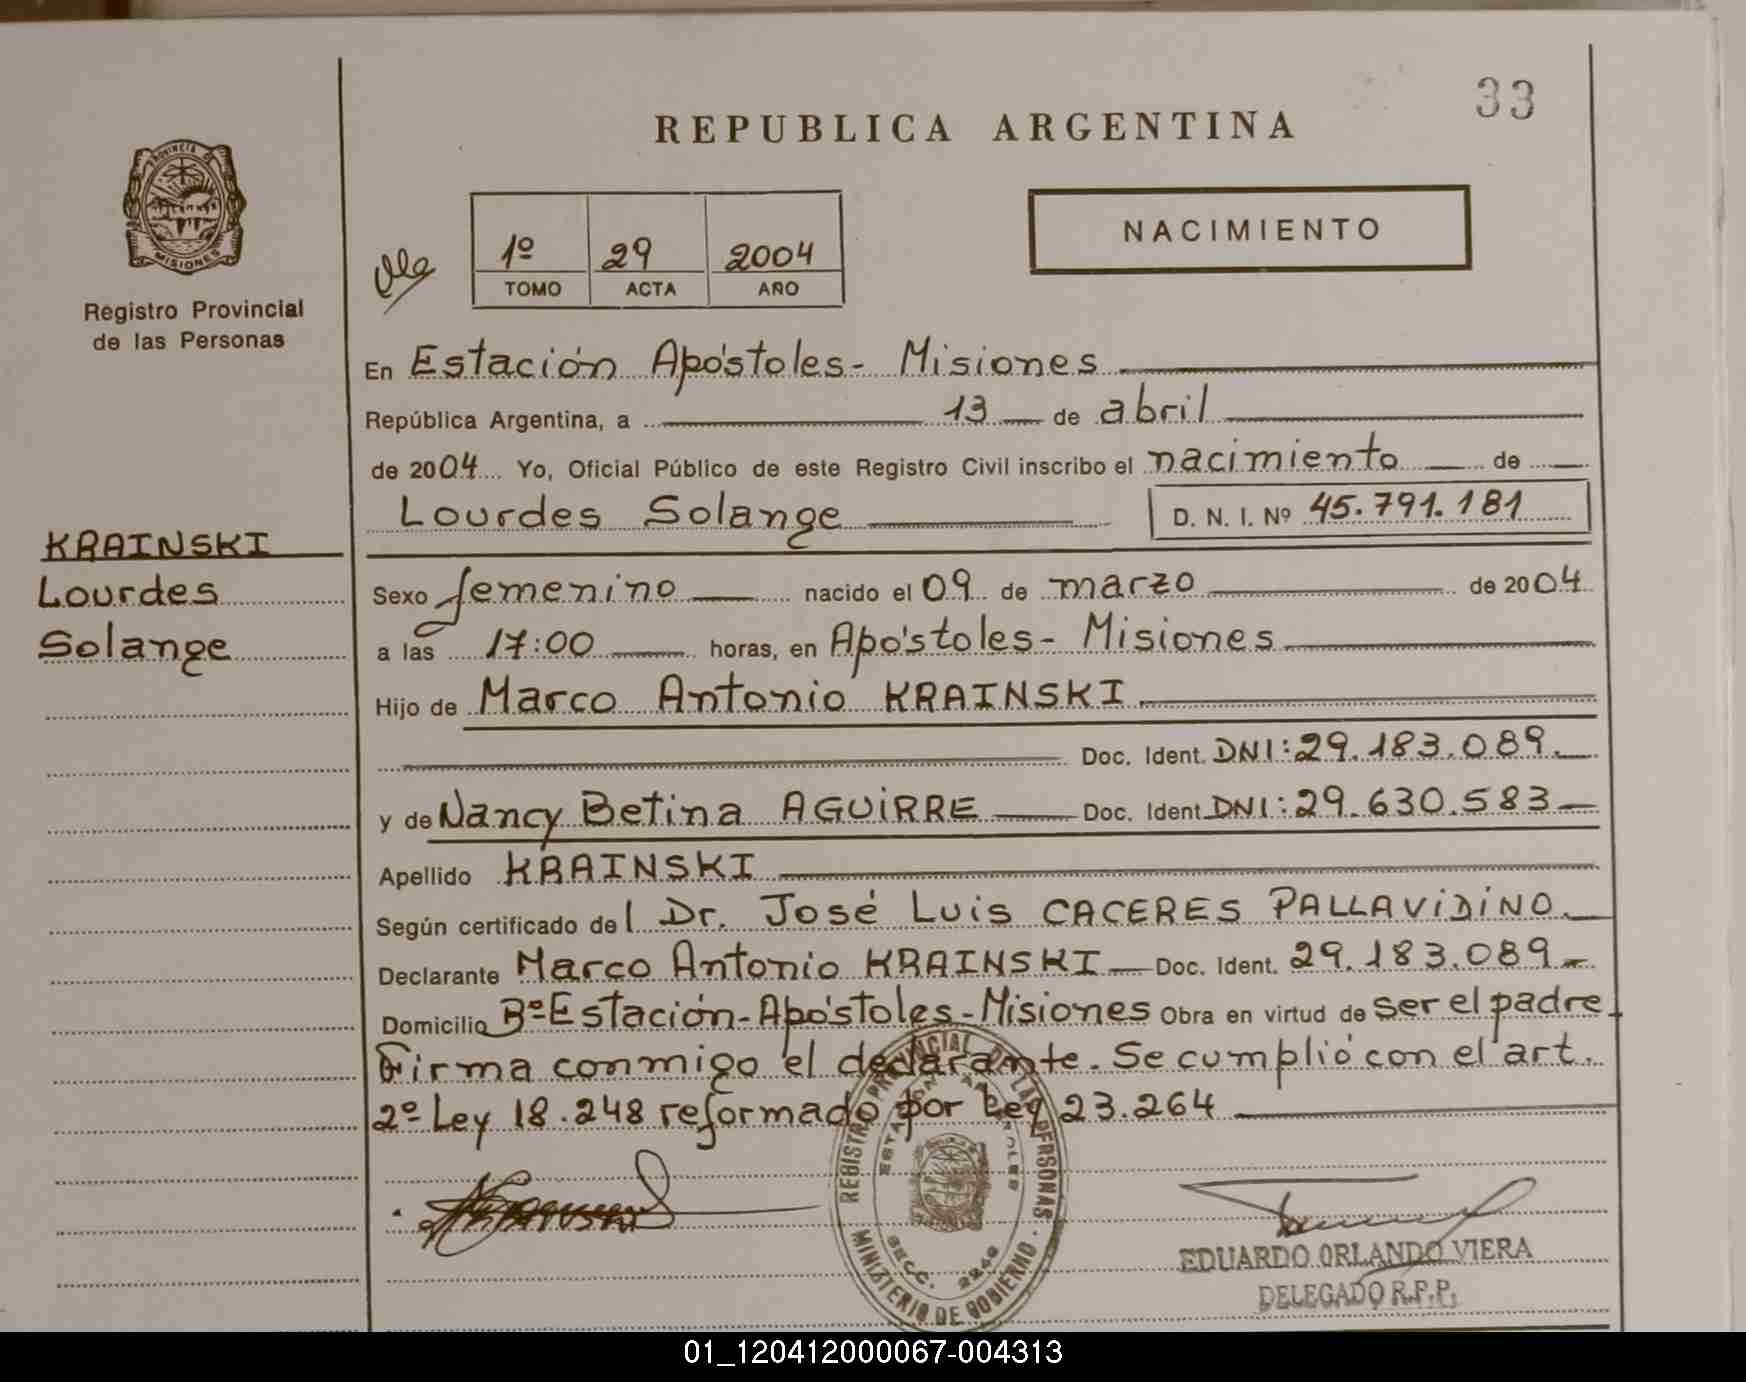 33
REPUBLICA ARGENTINA
PROVINCIA DE
MISIONES
Registro Provincial
de las Personas
1º 29 2004
TOMO ACTA AÑO
NACIMIENTO
En Estación Apóstoles- Misiones
República Argentina, a 13 de abril
de 2004 Yo, Oficial Público de este Registro Civil inscribo el nacimiento de
Lourdes Solange D. N. I. Nº 45.791.181
KRAINSKI
Lourdes
Solange
Sexo femenino nacido el 09 de marzo de 2004
a las 17:00 horas, en Apóstoles- Misiones
Hijo de Marco Antonio KRAINSKI
Doc. Ident. DNI: 29.183.089.
y de Nancy Betina AGUIRRE Doc. Ident DNI: 29.630.583
Apellido KRAINSKI
Según certificado del Dr. José Luis CACERES PALLAVIDINO
Declarante Marco Antonio KRAINSKI Doc. Ident. 29.183.089
Domicilio Bº Estación-Apóstoles-Misiones Obra en virtud de ser el padre
Firma conmigo el declarante. Se cumplió con el art.
2º Ley 18.248 reformado por Ley 23.264
REGISTRO PROVINCIAL DE LAS PERSONAS
ESTACION APOSTOLES
SECC. 2240
MINISTERIO DE GOBIERNO
EDUARDO ORLANDO VIERA
DELEGADO R.P.P.
01_120412000067-004313